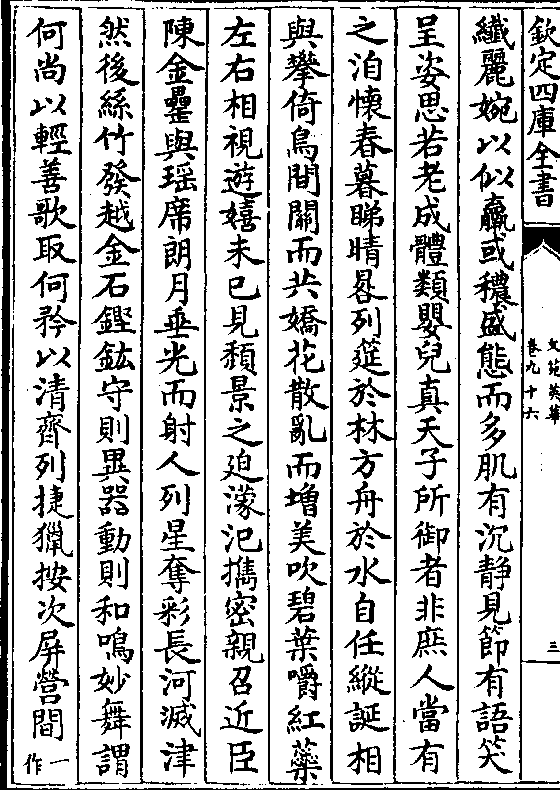 欽定四庫全書
文苑英華
卷九十六
三
纎麗婉以似羸或穠盛態而多肌有沉静見節有語笑
呈姿思若老成體類嬰兒真天子所御者非庶人當有
之洎懷春暮睇晴晷列筵於林方舟於水自任縱誕相
與攀倚鳥間關而共嬌花散亂而增美吹碧葉嚼紅蘂
左右相視遊嬉未已見頽景之迫濛汜擕密親召近臣
陳金罍與瑶席朗月垂光而射人列星奪彩長河滅津
然後絲竹發越金石鏗鈜守則異器動則和鳴妙舞謂
何尚以輕善歌取何矜以清齊列捷獵按次屏營間一作